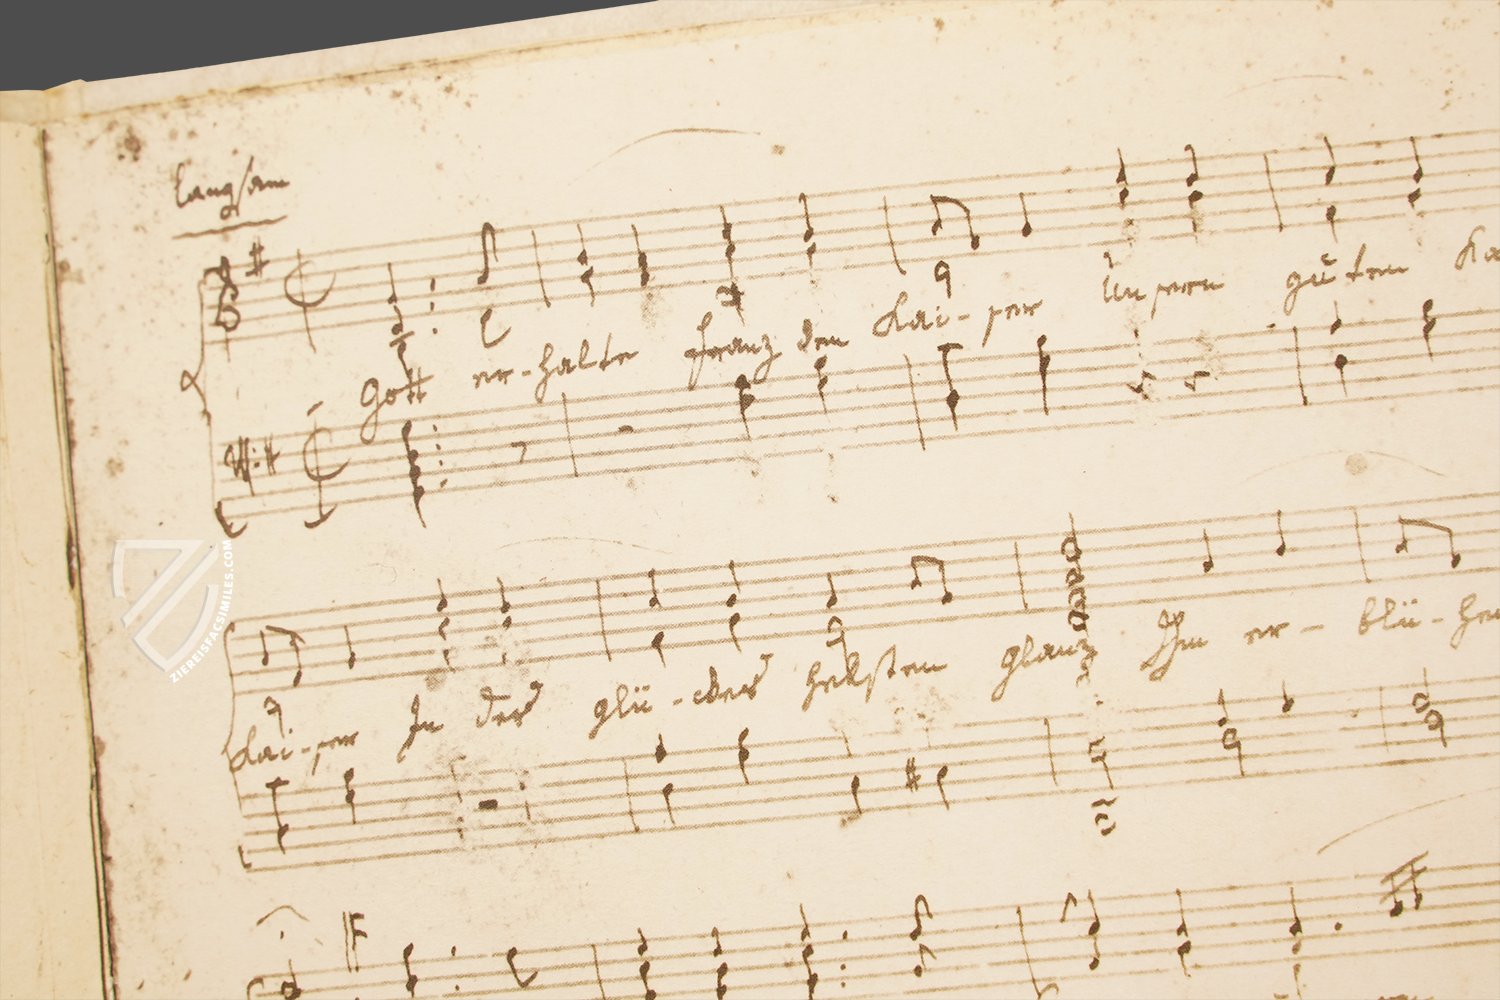 Langsam
Gott er-halte Franz den Kai-ser Unsern guten
Kai-ser In des glü-ckes hellsten glanz Ihm er-blü-hen
F
ZIEREISFACSIMILES.COM